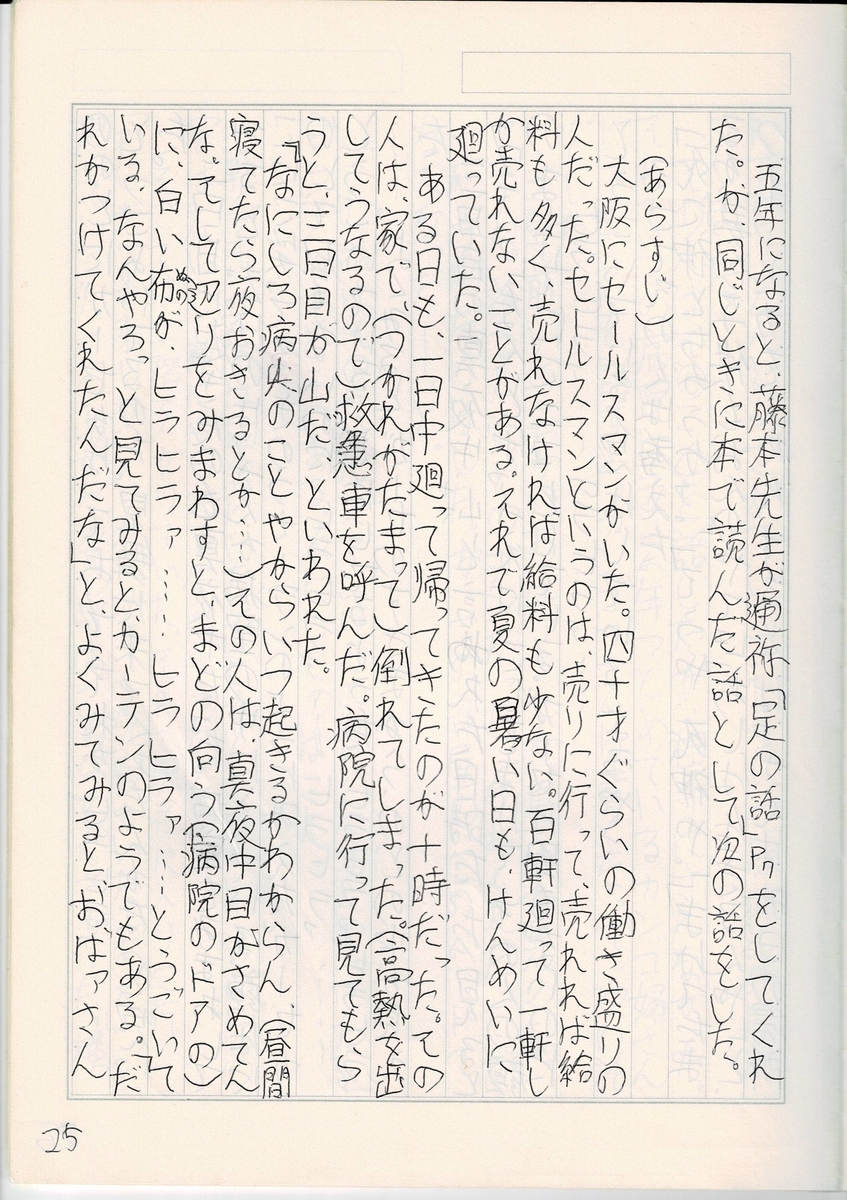 五年になると、藤本先生が通称「足の話」P7をしてくれ
た。が、同じときに本で読んだ話として次の話をした。
(あらすじ)
大阪にセールスマンがいた。四十才ぐらいの働き盛りの
人だった。セールスマンというのは、売りに行って、売れれば給
料も多く、売れなければ給料も少ない。百軒廻って一軒し
か売れないことがある。それで夏の暑い日も、けんめいに
廻っていた。
ある日も、一日中廻って帰ってきたのが十時だった。その
人は、家で、(つかれがたまって)倒れてしまった。(高熱を出
してうなるので)救急車を呼んだ。病院に行って見てもら
うと、三日目が山だ、といわれた。
『なにしろ病人のことやからいつ起きるかわからん、(昼間
寝てたら夜おきるとか……)その人は、真夜中目がさめてん
な。そして辺りをみまわすと、まどの向う(病院のドアの)
に、白い布ぬのが、ヒラヒラァ……ヒラヒラァ……とうごいて
いる、なんやろっ と見てみると、カーテンのようでもある。「だ
れかつけてくれたんだな」と、よくみてみると、おばァさん
25